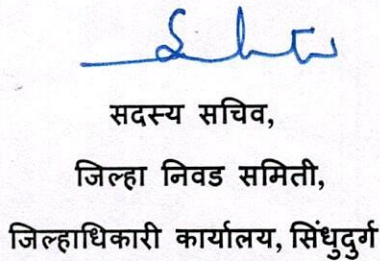 सदस्य सचिव,
जिल्हा निवड समिती,
जिल्हाधिकारी कार्यालय, सिंधुदुर्ग